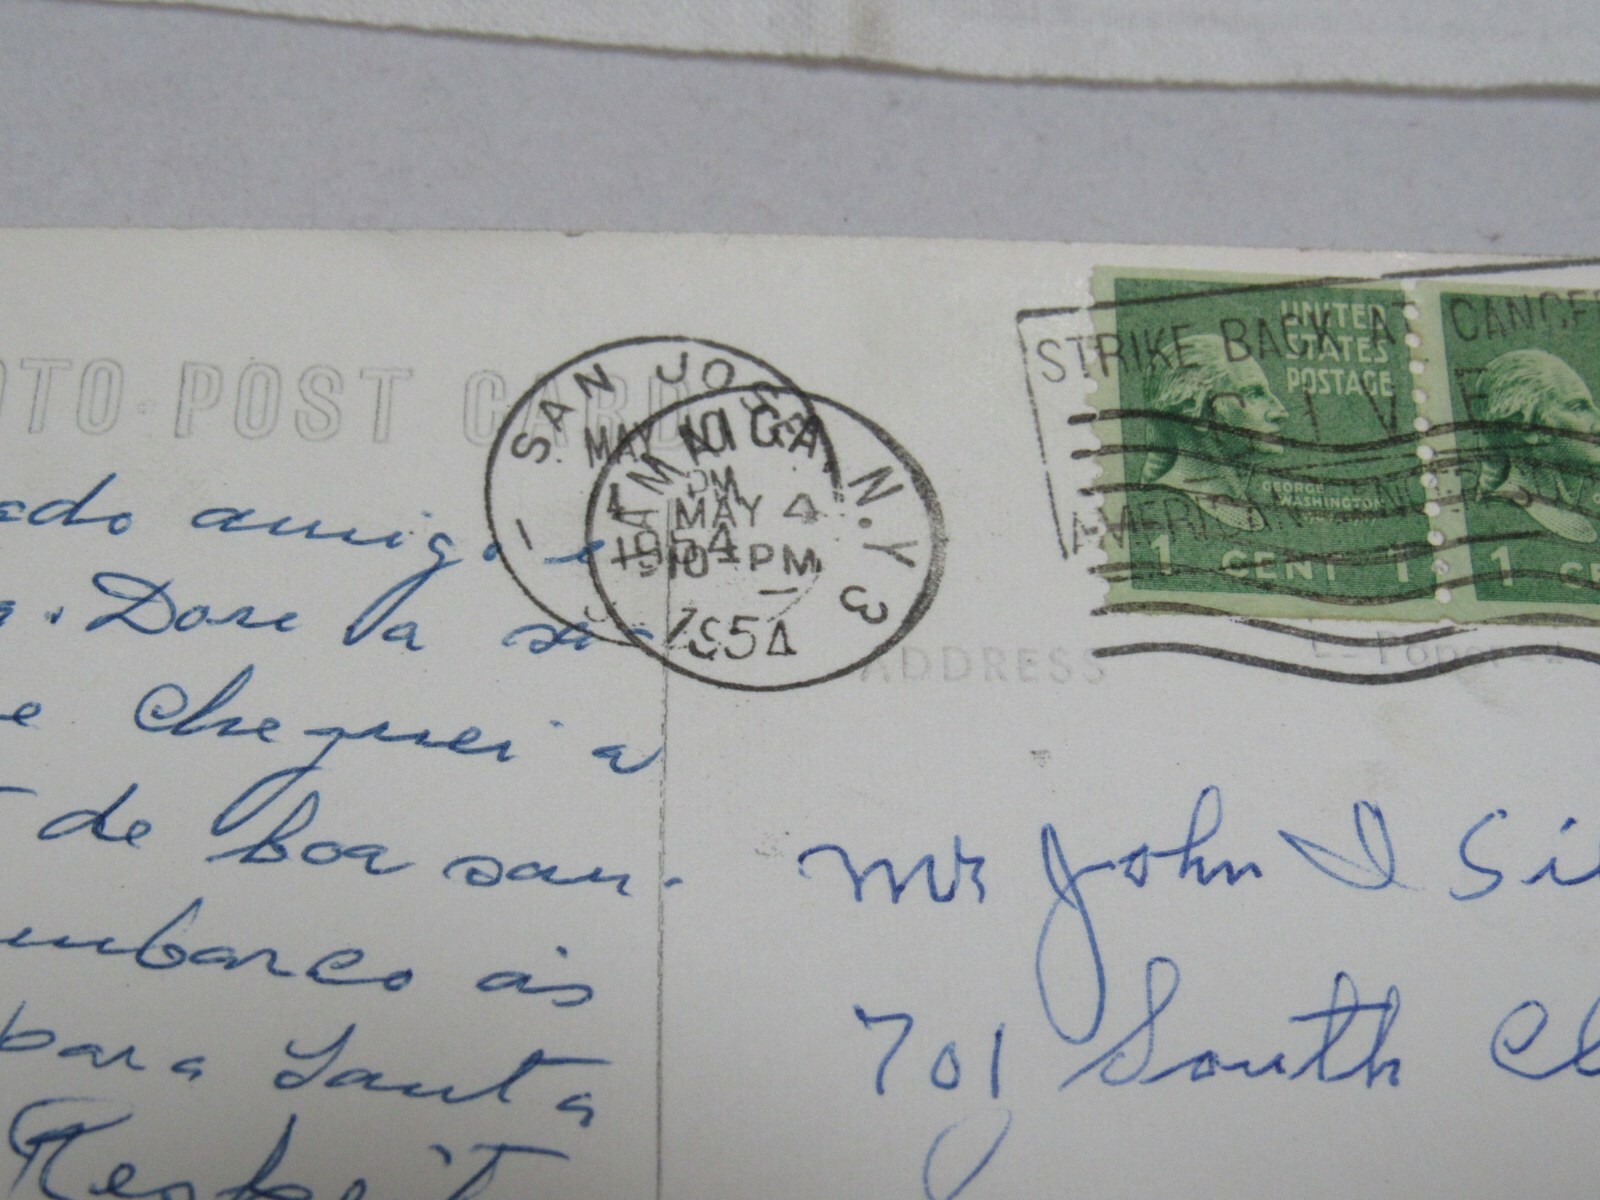 OTO-POST CARD
SAN JOSE
MAY 10
PM
1954
JAMAICA, N.Y. 3
MAY 4
9 10 PM
1954
STRIKE BACK AT CANCER
GIVE
AMERICAN CANCER SO
UNITED
STATES
POSTAGE
GEORGE
WASHINGTON
1 CENT 1
1 CE
ADDRESS
ado amigo e
a. Dou a
e cheguei a
de boa sau-
embarco às
bara Santa
Mr John I Sil
701 South Cl